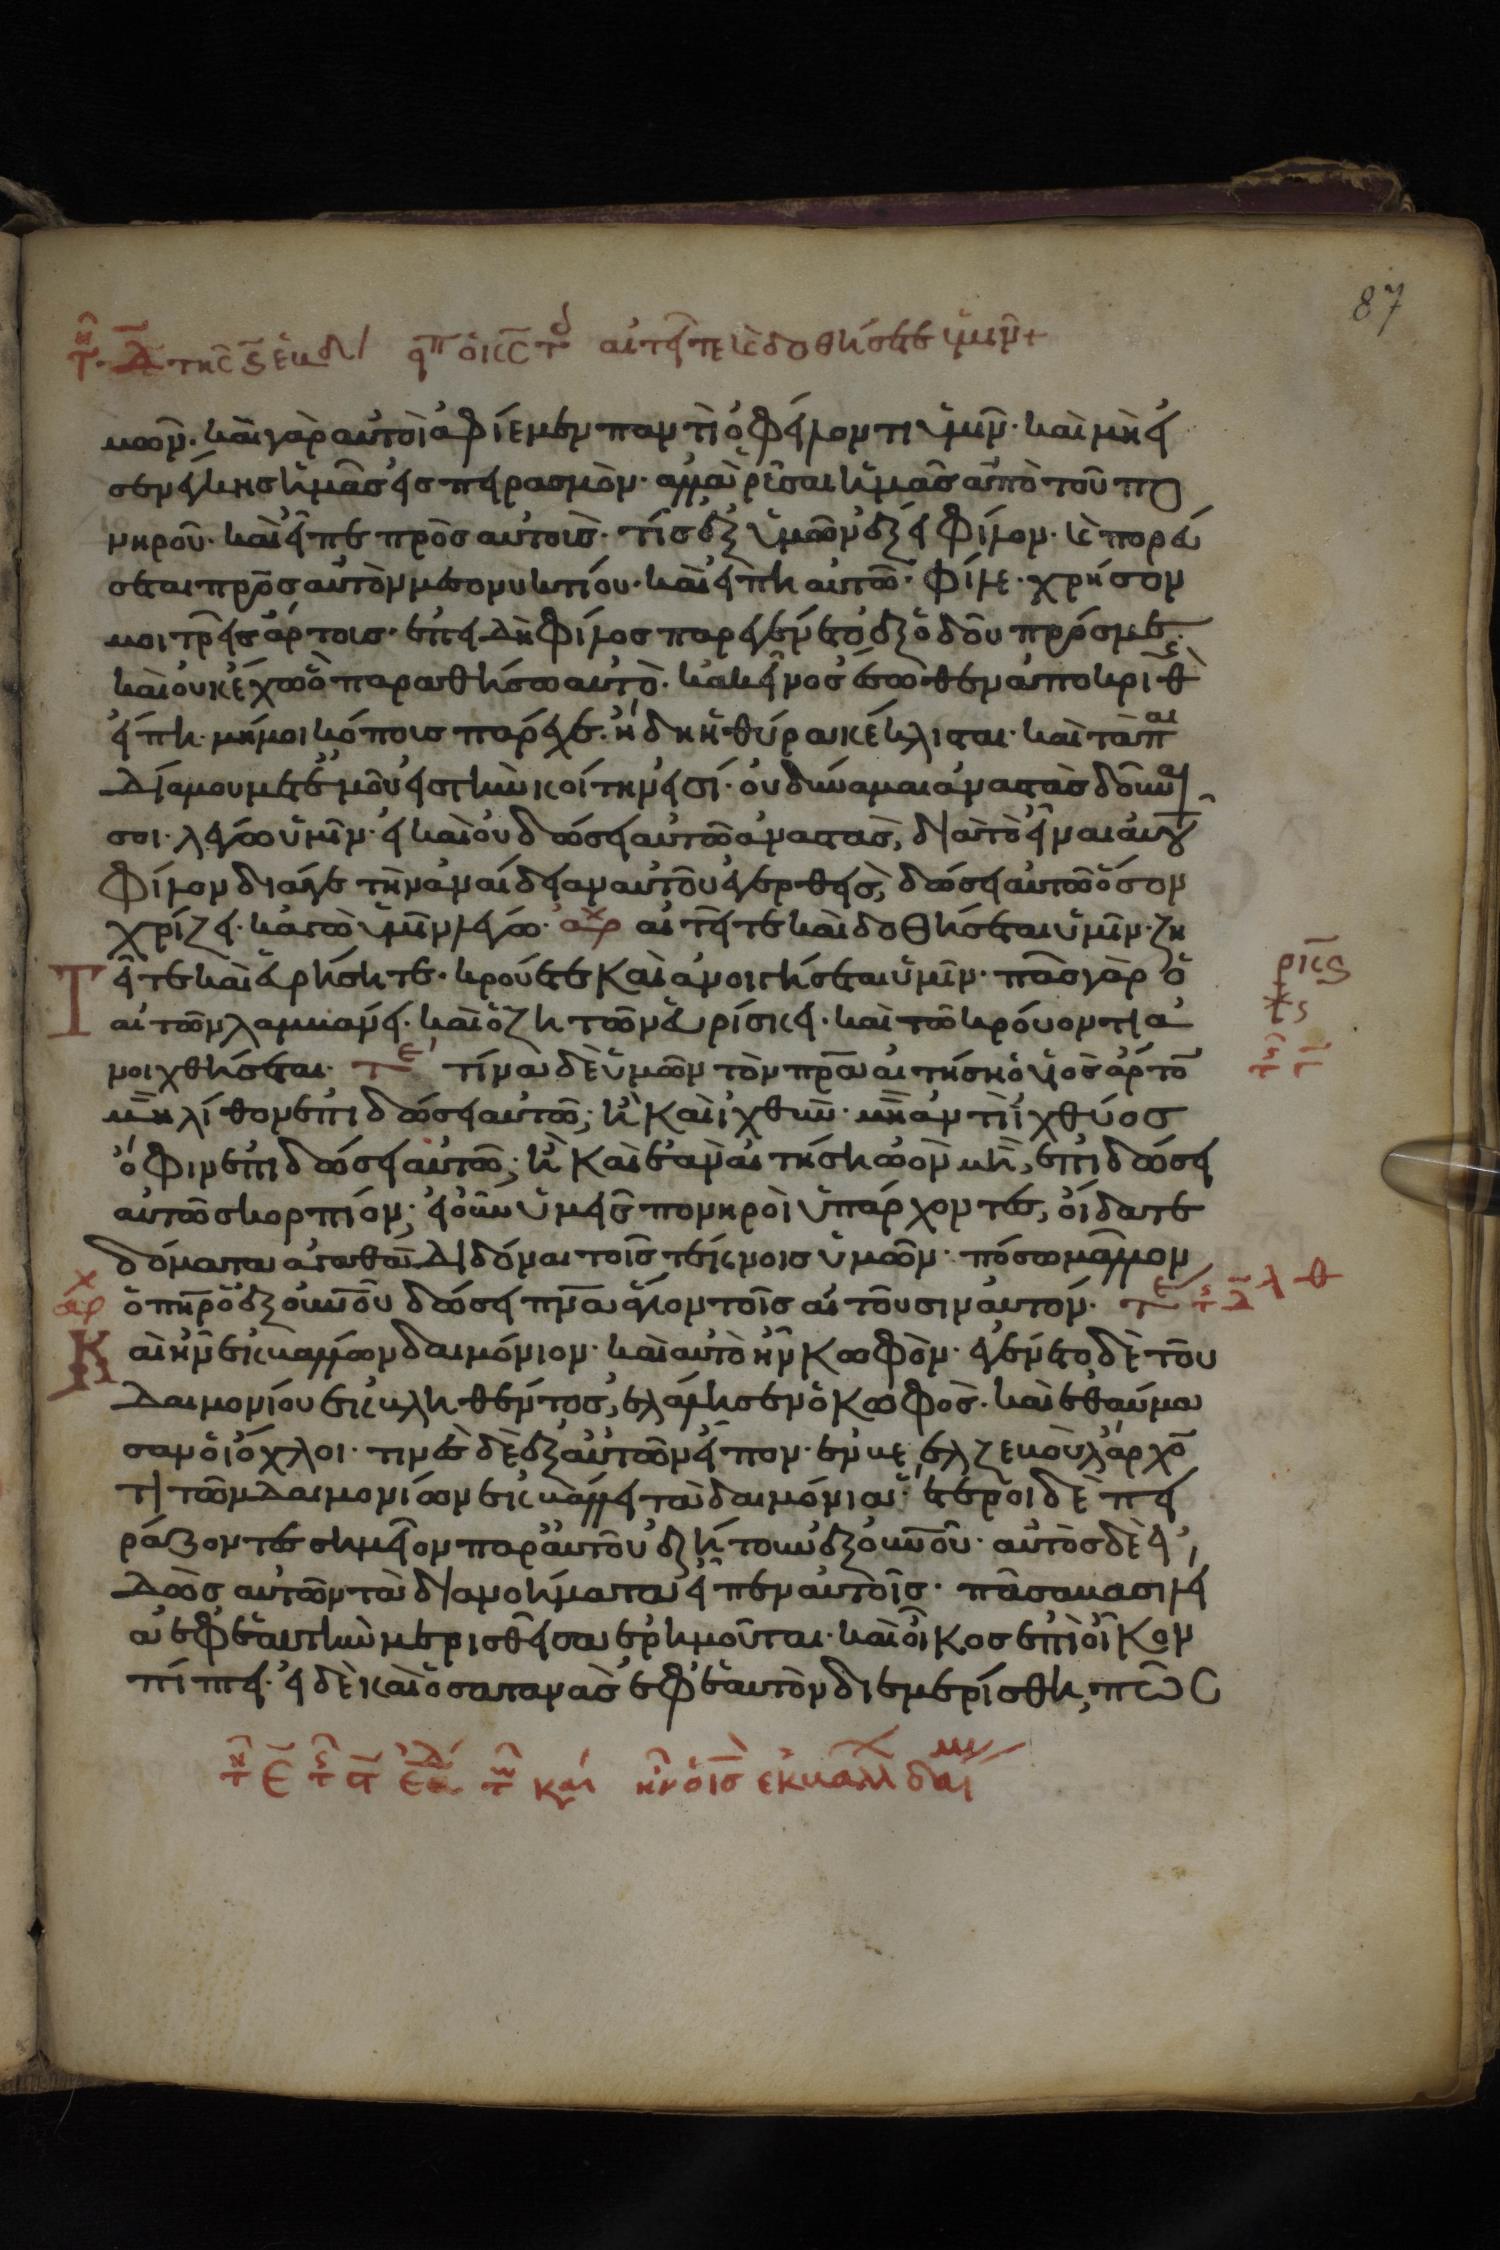 μῶν. καὶ γὰρ αὐτοὶ ἀφίεμεν παντὶ ὀφείλοντι ὑμῖν. καὶ μὴ εἰ
σενέγκης ἡμᾶς εἰς πειρασμὸν. ἀλλὰ ῥῦσαι ἡμᾶς ἀπὸ τοῦ πο
νηροῦ. καὶ εἶπε πρὸς αὐτοὺς. τίς ἐξ ὑμῶν ἕξει φίλον. κὲ πορεύ
σεται πρὸς αὐτὸν μεσονυκτίου. καὶ εἴπη αὐτῶ. φίλε. χρήσον
μοι τρεῖς ἄρτους. ἐπειδὴ φίλος παρεγένετο ἐξ ὁδοῦ πρός με.
καὶ οὐκ ἔχω ὃ παραθήσω αὐτὸ. κακεῖνος ἔσωθεν ἀποκριθ
εἴπη. μή μοι κόπους πάρεχε. ἤδη ἡ θύρα κέκλισται. καὶ τὰ παι
δία μου μετ ἐμοῦ εἰς τὴν κοίτην εἰσί. οὐ δύναμαι ἀναστὰς δοῦναι
σοι. λέγω ὑμῖν. εἰ καὶ οὐ δώσει αὐτῶ ἀναστὰς, διὰ τὸ εἶναι αὐτοῦ
φίλον διά γε τὴν ἀναίδειαν αὐτοῦ ἐγερθεὶς, δώσει αὐτῶ ὅσον
χρίζει. κἀγὼ ὑμῖν λέγω. αρχ αἰτεῖτε καὶ δοθήσεται ὑμῖν. ζη
Τεῖτε καὶ εὑρήσητε. κρούετε καὶ ἀνοιγήσεται ὑμῖν. πᾶς γὰρ ὁ
αἰτῶν λαμβάνει. καὶ ὁ ζητῶν εὑρίσκει. καὶ τῶ κρούοντι ἀ
νοιχθήσεται. τε τίνα δὲ ὑμῶν τὸν πρα αἰτήση ὁ υἱὸς ἄρτο
μὴ λίθον ἐπιδώσει αὐτῶ; ἢ καὶ ἰχθὺν. μὴ ἀντὶ ἰχθύος
ὄφιν ἐπιδώσει αὐτῶ; ἢ καὶ ἐὰν αἰτήση ὠὸν μὴ, ἐπιδώσει
αὐτῶ σκορπίον; εἰ οὖν ὑμεῖς πονηροὶ ὑπάρχοντες, οἴδατε
δόματα ἀγαθὰ διδόναι τοῖς τέκνοις ὑμῶν. πόσω μᾶλλον
ὁ πηρ ὁ ἐξ οὐνοῦ δώσει πνα ἅγιον τοῖς αἰτοῦσιν αὐτόν.
Καὶ ἦν ἐκβάλλων δαιμόνιον. καὶ αὐτὸ ἦν κωφὸν. ἐγένετο δὲ τοῦ
δαιμονίου ἐκβληθέντος, ἐλάλησεν ὁ κωφὸς. καὶ ἐθαύμα
σαν οἱ ὄχλοι. τινὲς δὲ ἐξ αὐτῶν εἶπον. ἐν βεελζεβοὺλ ἄρχο
τι τῶν δαιμονίων ἐκβάλλει τὰ δαιμόνια. ἕτεροι δὲ πει
ράζοντες σημεῖον παρ αὐτοῦ ἐζήτουν ἐξ οὐνοῦ. αὐτὸς δὲ εἰ
δὼς αὐτῶν τὰ διανοήματα εἶπεν αὐτοῖς. πᾶσα βασιλεί
α ἐφ ἑαυτὴν μερισθεῖσα ἐρημοῦται. καὶ οἶκος ἐπὶ οἶκον
πίπτει. εἰ δὲ καὶ ὁ σατανὰς ἐφ ἑαυτὸν διεμερίσθη, πῶς
87